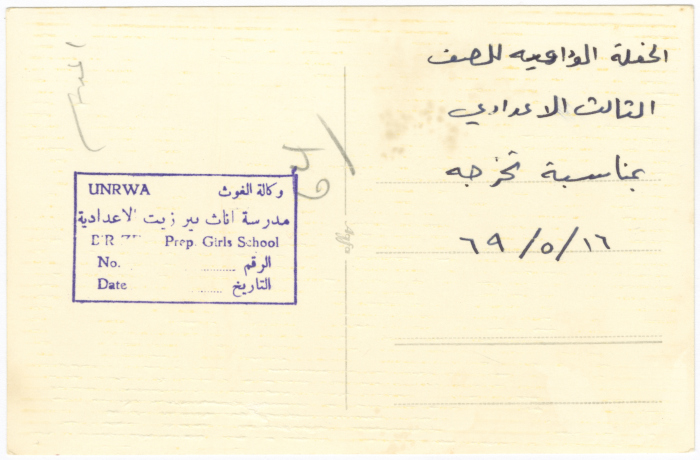 الحفلة الوداعيه للصف
الثالث الاعدادي
بمناسبة تخرجه
١٦/٥/٦٩
UNRWA وكالة الغوث
مدرسة اناث بير زيت الاعدادية
BIR ZE Prep. Girls School
No. ........ الرقم
Date ...... التاريخ